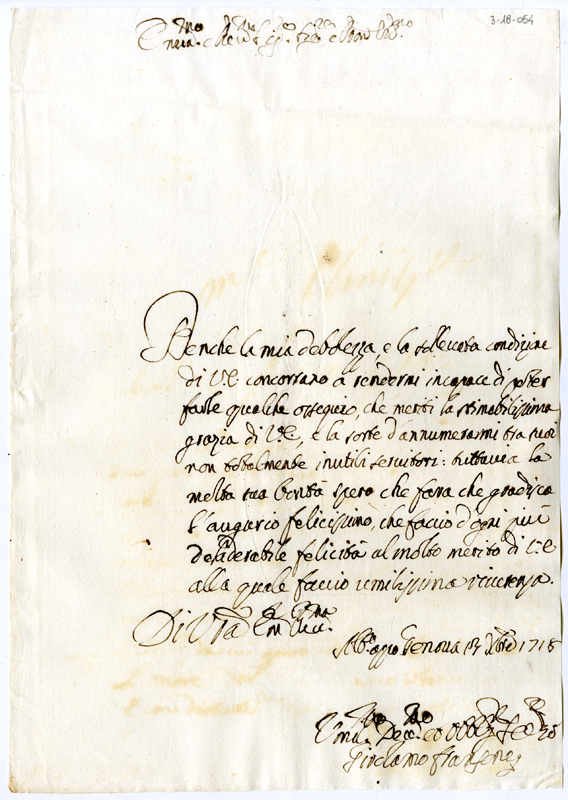 3-18-054
Em.mo e Rev.mo Sig.r
Benche la mia debolezza, e la solleuata condizione
di V.E. concorrano a rendermi incapace di poter
farle qualche ossequio, che meriti la stimabilissima
grazia di V.E, e la sorte d'annumerarmi tra suoi
non totalmente inutili seruitori: tuttauia la
molta sua bontà spero che fara che gradisca
l'augurio felicissimo, che faccio d'ogni più
desiderabile felicità al molto merito di V.E
alla quale faccio umilissima riuerenza.
Di V.ra Em.za Reu.ma
Genoua 17 Xbre 1718
Girolamo